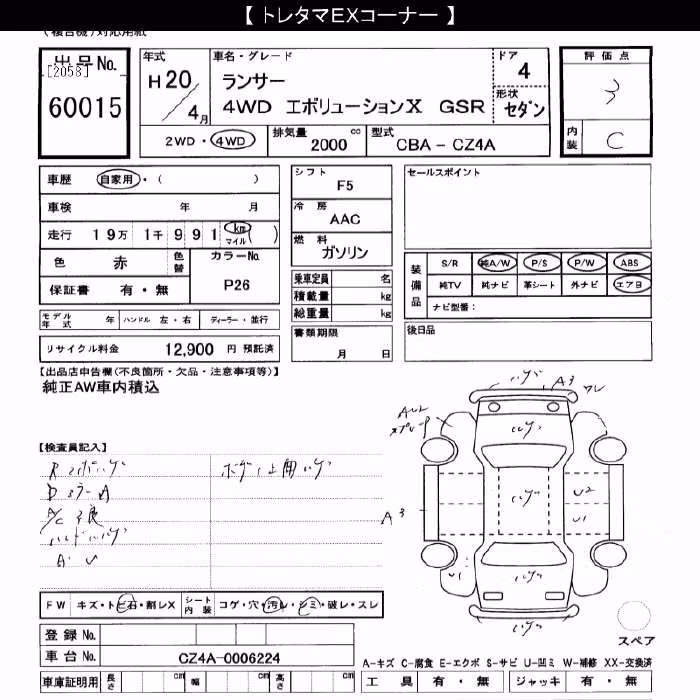 【 トレタマEXコーナー 】
(複合機)対応用紙
出品No. [2058] 60015
年式 H20/4月
車名・グレード
ランサー
4WD エボリューションX GSR
ドア 4
形状 セダン
評価点 3
内装 C
2WD・4WD
排気量 2000 cc
型式 CBA - CZ4A
車歴 自家用・( )
車検 年 月
走行 19万 1千 9 9 1 km マイル ( )
色 赤 色替
カラーNo. P26
保証書 有・無
モデル年式 年 ハンドル 左・右 ディーラー・並行
リサイクル料金 12,900 円 預託済
シフト F5
冷房 AAC
燃料 ガソリン
乗車定員 名
積載量 kg
総重量 kg
書類期限 月 日
セールスポイント
装備品
S/R 純A/W P/S P/W ABS
純TV 純ナビ 革シート 外ナビ エアB
ナビ型番:
後日品
【出品店申告欄(不良箇所・欠品・注意事項等)】
純正AW車内積込
【検査員記入】
ボディ上面ハゲ
A・U
ハゲ A3 ワレ
AU2 スプレー
ハゲ
ハゲ
U2
U1
A3
U1
ハゲ
ハゲ
FW キズ・トビ石・割レX
シート内装 コゲ・穴・汚レ・シミ・破レ・スレ
登録No.
車台No. CZ4A-0006224
車庫証明用 長さ cm 幅 cm 高さ cm
スペア
A-キズ C-腐食 E-エクボ S-サビ U-凹ミ W-補修 XX-交換済
工具 有・無 ジャッキ 有・無